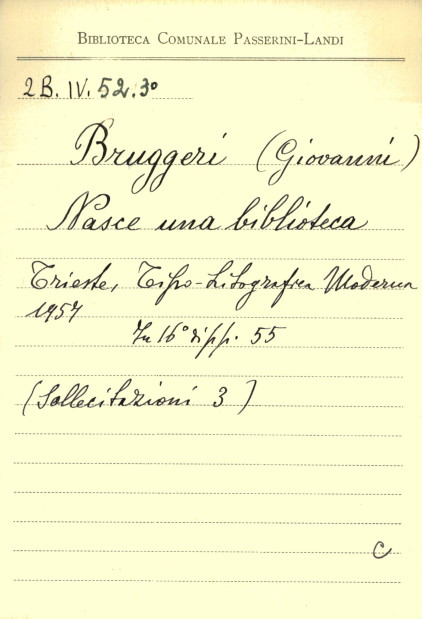 BIBLIOTECA COMUNALE PASSERINI-LANDI
2B. IV. 52.3º
Bruggeri (Giovanni)
Nasce una biblioteca
Trieste, Tipo-Litografica Moderna
1957
In 16° di pp. 55
(Sollecitazioni 3)
C